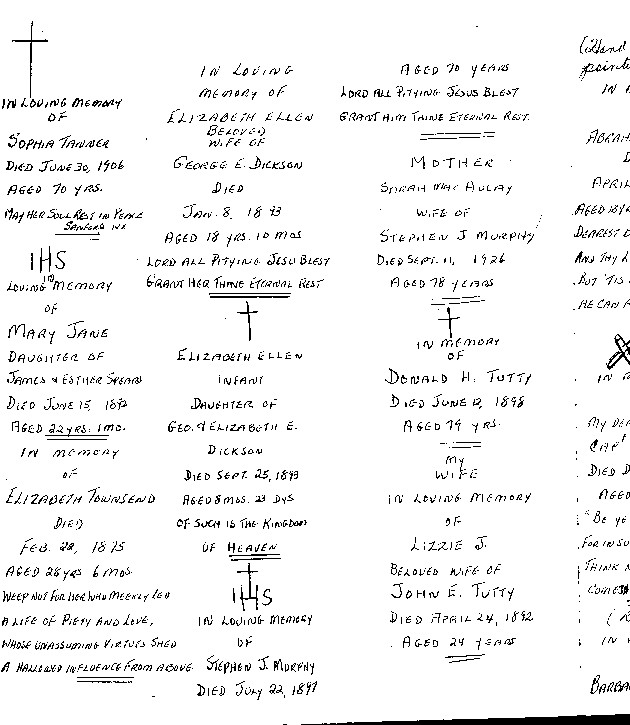 IN LOVING MEMORY
OF
SOPHIA TANNER
DIED JUNE 30, 1906
AGED 70 YRS.
MAY HER SOUL REST IN PEACE
IHS
IN
LOVING MEMORY
OF
MARY JANE
DAUGHTER OF
JAMES & ESTHER SPEARS
DIED JUNE 15, 1892
AGED 22 YRS. 1 MO.
IN MEMORY
OF
ELIZABETH TOWNSEND
DIED
FEB. 22, 1875
AGED 28 YRS 6 MOS.
WEEP NOT FOR HER WHO MEEKLY LED
A LIFE OF PIETY AND LOVE,
WHOSE UNASSUMING VIRTUES SHED
A HALLOWED INFLUENCE FROM ABOVE
IN LOVING
MEMORY OF
ELIZABETH ELLEN
BELOVED
WIFE OF
GEORGE E. DICKSON
DIED
JAN. 8, 1893
AGED 18 YRS. 10 MOS
LORD ALL PITYING JESU BLEST
GRANT HER THINE ETERNAL REST
ELIZABETH ELLEN
INFANT
DAUGHTER OF
GEO. & ELIZABETH E.
DICKSON
DIED SEPT. 25, 1893
AGED 8 MOS. 23 DYS
OF SUCH IS THE KINGDOM
OF HEAVEN
IHS
IN LOVING MEMORY
OF
STEPHEN J. MURPHY
DIED JULY 22, 1897
AGED 70 YEARS
LORD ALL PITYING JESUS BLEST
GRANT HIM THINE ETERNAL REST.
MOTHER
SARAH MAC AULAY
WIFE OF
STEPHEN J MURPHY
DIED SEPT. 11, 1926
AGED 78 YEARS
IN MEMORY
OF
DONALD H. TUTTY
DIED JUNE 12, 1898
AGED 79 YRS.
MY
WIFE
IN LOVING MEMORY
OF
LIZZIE J.
BELOVED WIFE OF
JOHN E. TUTTY
DIED APRIL 24, 1892
AGED 24 YEARS
(Hand
IN
ABRAH
D
APRIL
AGED 18 Y
DEAREST
AND THY L
BUT 'TIS
HE CAN
IN
MY DEA
CAPT
DIED D
AGED
"BE YE
FOR IN SU
THINK N
COMETH
IN
BARBA